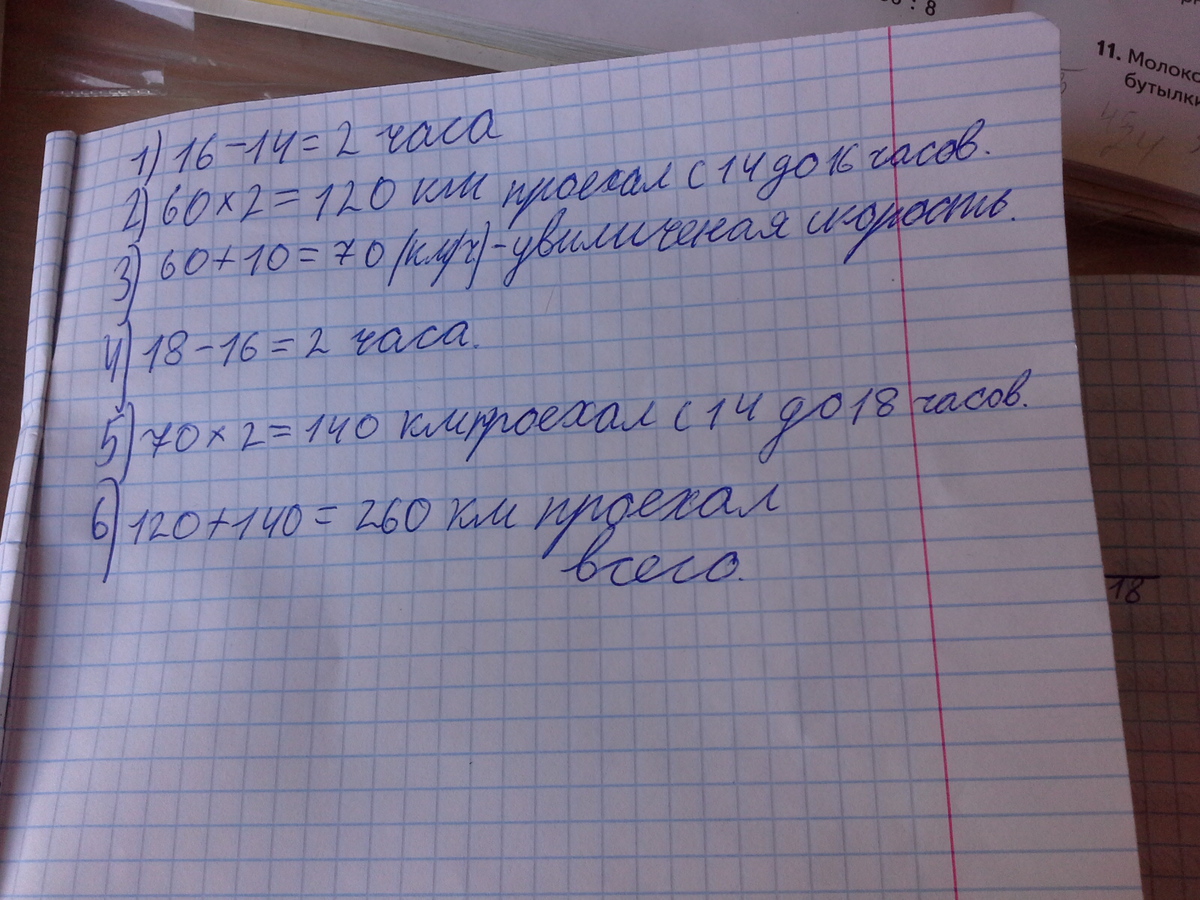 8 : 8
11. Молоко
бутылки
1) 16-14=2 часа
2) 60×2=120 км проехал с 14 до 16 часов.
3) 60+10=70 (км/ч)-увиличеная скорость.
4) 18-16=2 часа.
5) 70×2=140 км проехал с 14 до 18 часов.
6) 120+140=260 км проехал
всего.
18